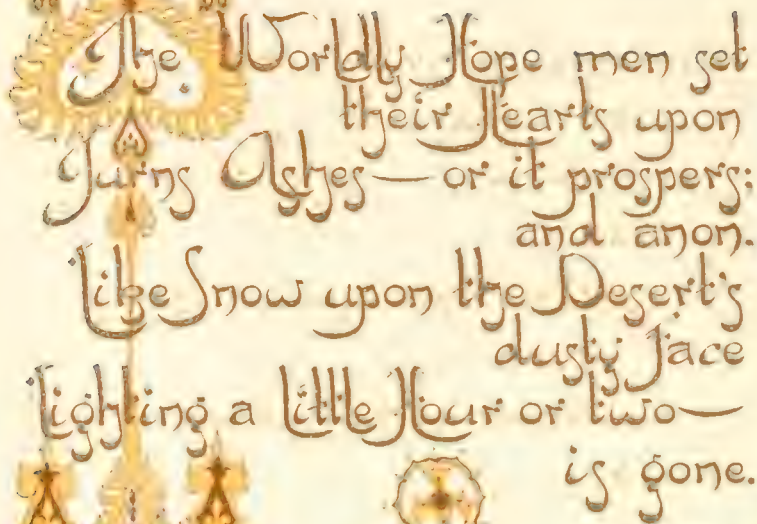 The Worldly Hope men set
their Hearts upon
Turns Ashes—or it prospers:
and anon.
Like Snow upon the Desert's
dusty Face
Lighting a little Hour or two—
is gone.